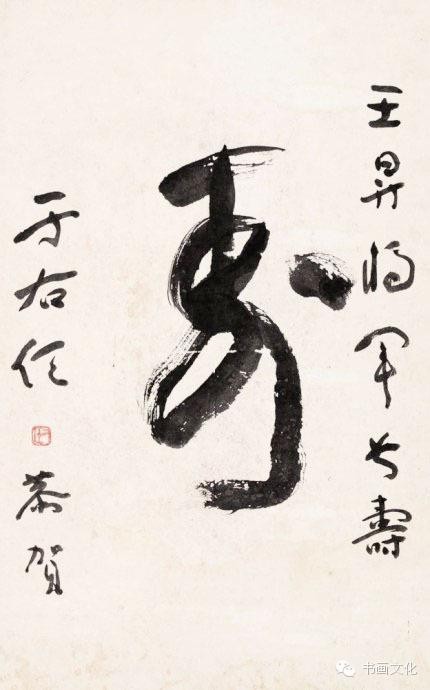 王昇將軍長壽
壽
于右任
恭賀
书画文化